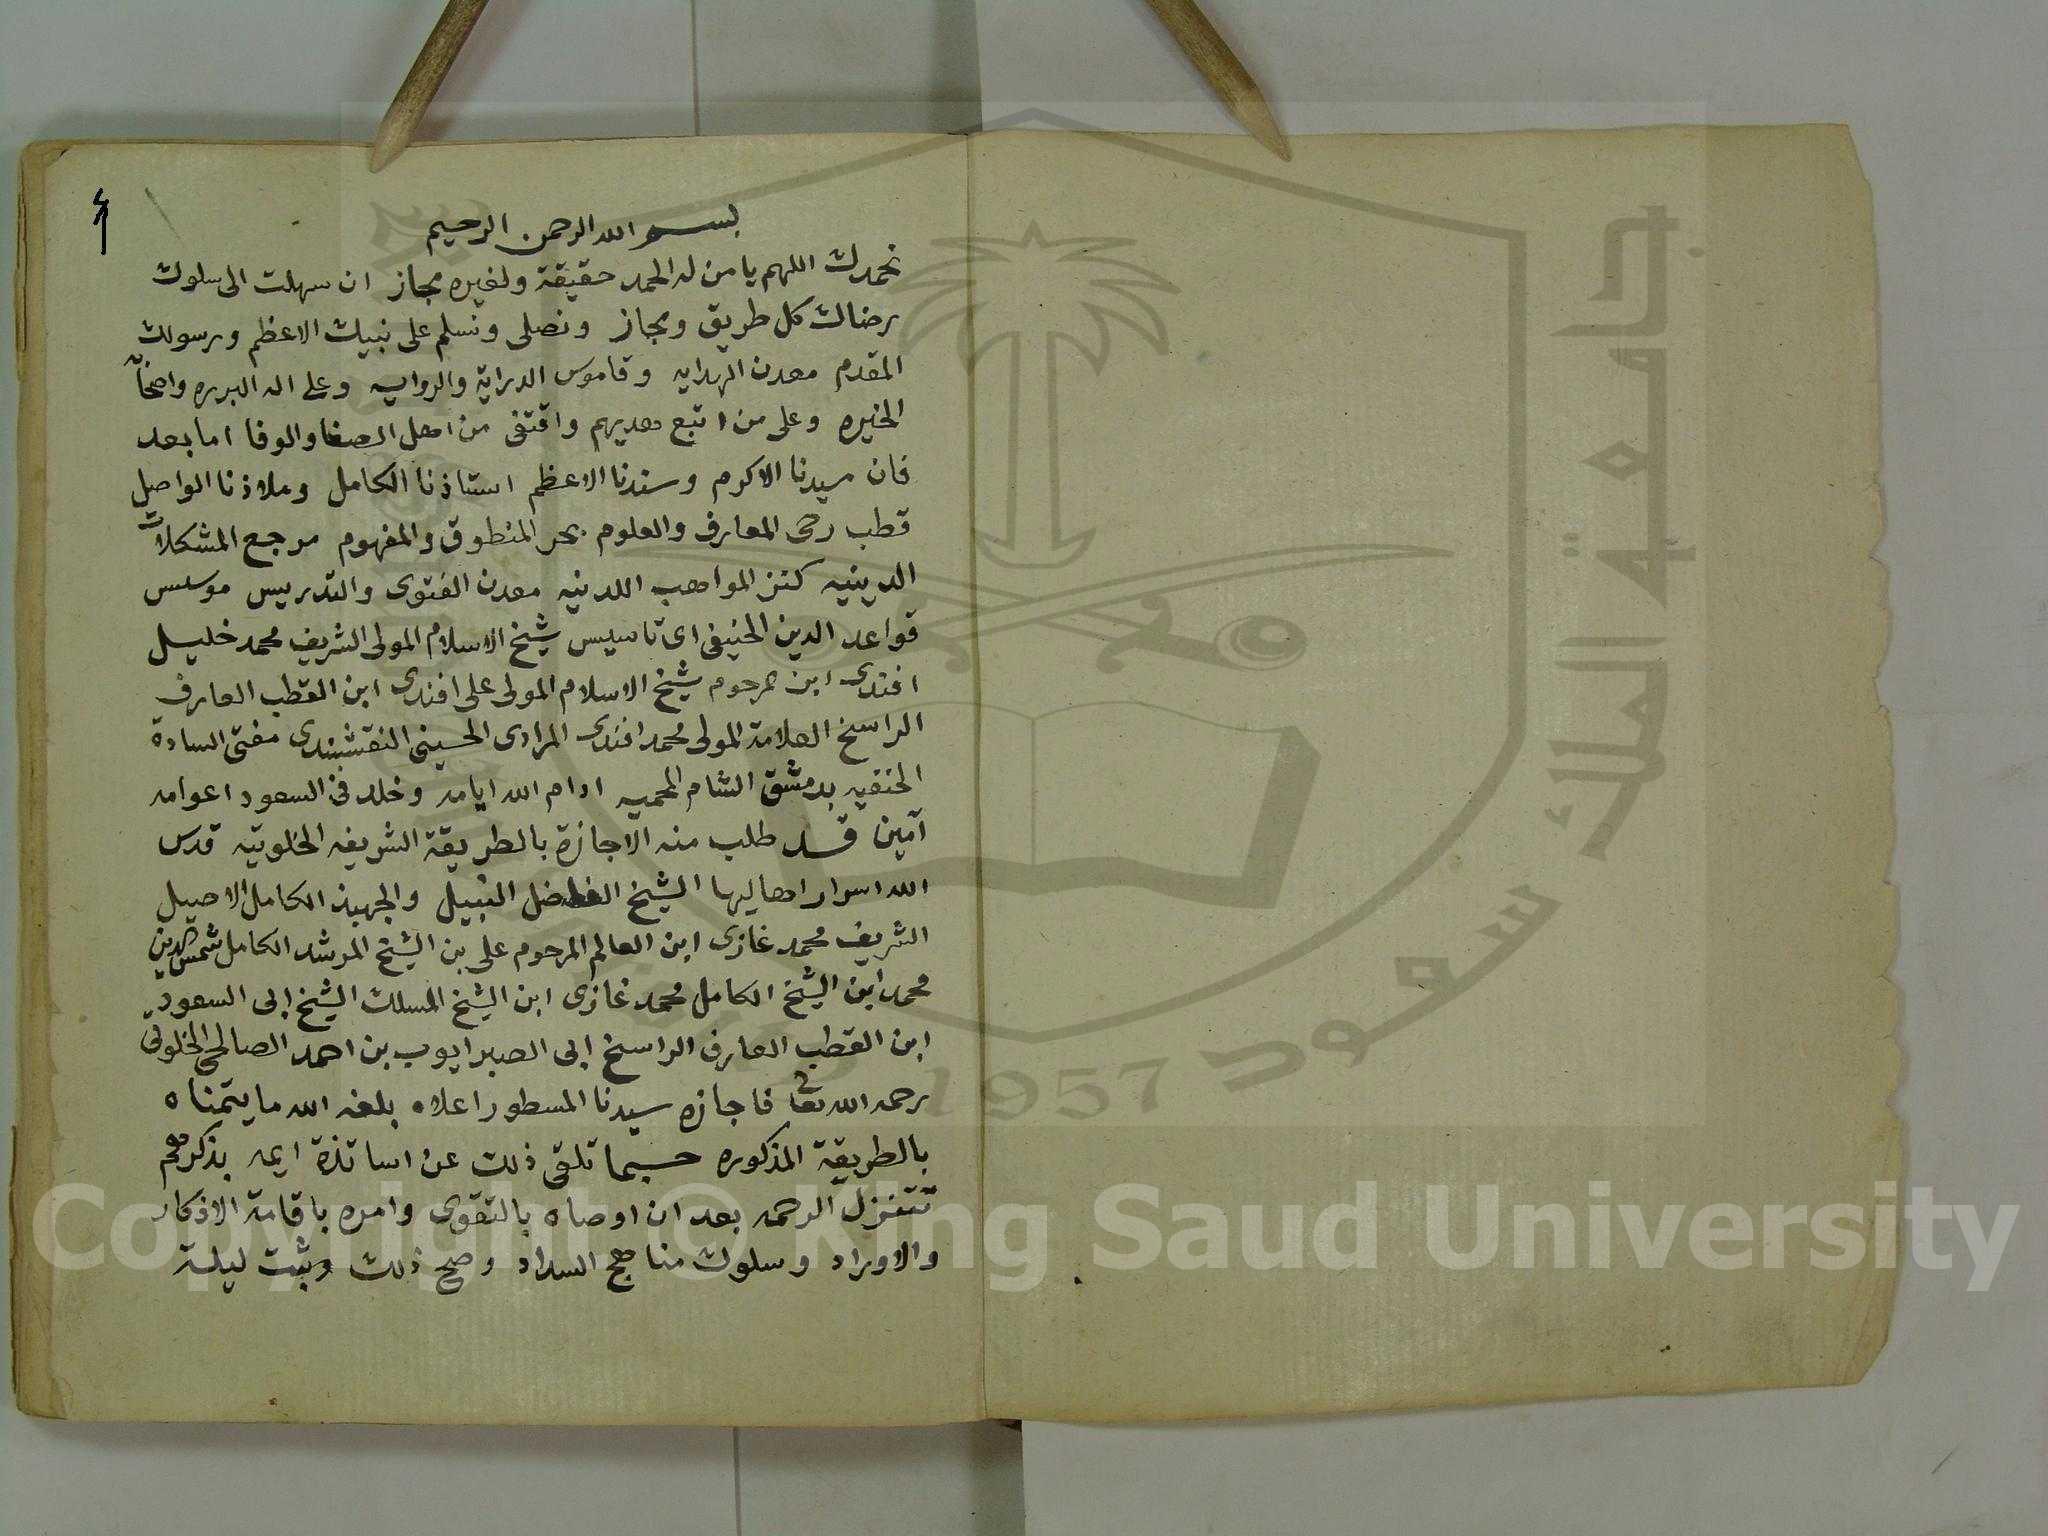 بسم الله الرحمن الرحيم
نحمدك اللهم يا من له الحمد حقيقة ولغيره مجاز ان سهلت الى سلوك
رضاك كل طريق ومجاز ونصلى ونسلم على نبيك الاعظم ورسولك
المقدم معدن الهدايه وقاموس الدراية والروايه وعلى اله البرره واصحابه
الخيره وعلى من اتبع هديهم واقتفى من اهل الصفا والوفا اما بعد
فان سيدنا الاكرم وسندنا الاعظم استاذنا الكامل وملاذنا الواصل
قطب رحى المعارف والعلوم بحر المنطوق والمفهوم مرجع المشكلات
الدينيه كنز المواهب اللدنيه معدن الفتوى والتدريس موسس
قواعد الدين الحنيفى اى تاسيس شيخ الاسلام المولى الشريف محمد خليل
افندى ابن المرحوم شيخ الاسلام المولى على افندى ابن القطب العارف
الراسخ العلامة المولى محمد افندى المرادى الحسينى النقشبندى مفتى السادة
الحنفيه بدمشق الشام المحميه ادام الله ايامه وخلد فى السعود اعوامه
آمين قد طلب منه الاجازة بالطريقة الشريفه الخلوتيه قدس
الله اسرار اهاليها الشيخ الفاضل النبيل والجهبذ الكامل الاصيل
الشريف محمد غازى ابن العالم المرحوم على بن الشيخ المرشد الكامل شمس الدين
محمد ابن الشيخ الكامل محمد غازى ابن الشيخ المسلك الشيخ ابى السعود
ابن القطب العارف الراسخ ابى الصبر ايوب بن احمد الصالحى الخلوتى
رحمه الله تعا فاجازه سيدنا المسطور اعلاه بلغه الله ما يتمناه
بالطريقة المذكوره حسبما تلقى ذلك عن اساتذة ايمه بذكرهم
تتنزل الرحمه بعد ان اوصاه بالتقوى وامره باقامة الاذكار
والاوراد وسلوك مناهج السداد وصح ذلك وثبت ليلة
جامعة الملك سعود
1957
Copyright © King Saud University